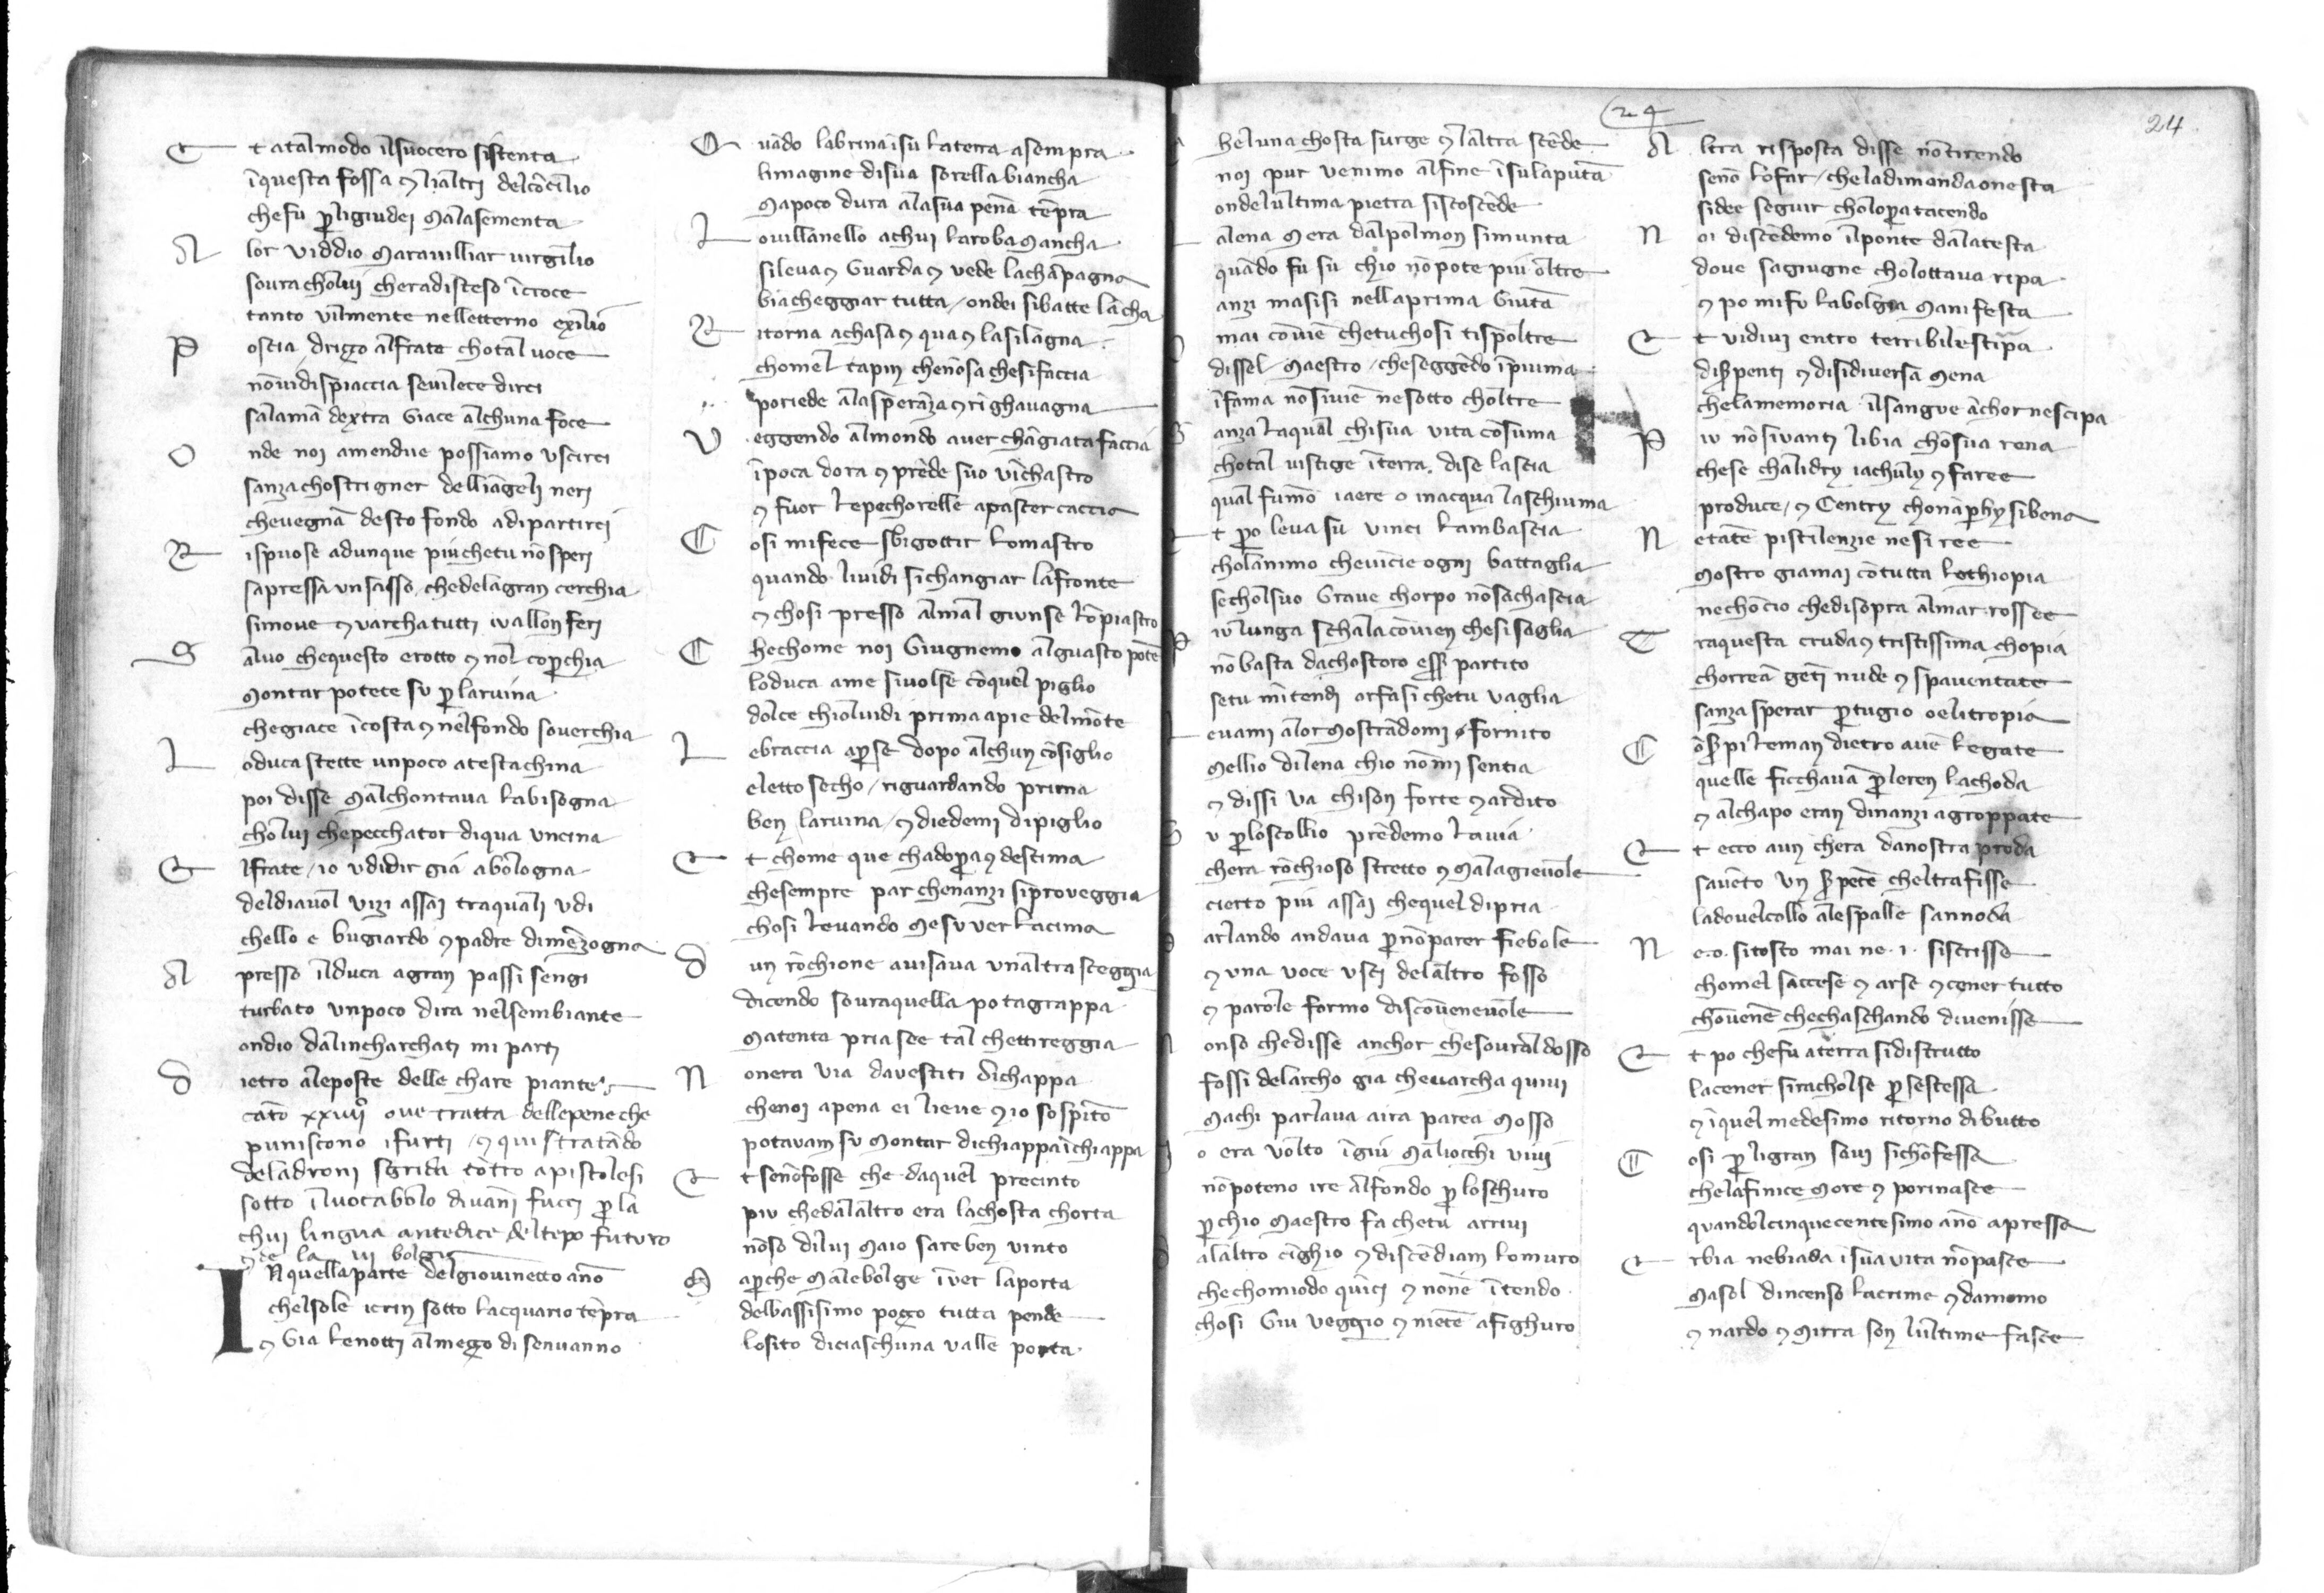 Et atal modo il suocero si stenta
ī questa fossa ⁊ li altri del cōcilio
che fu ꝑ li giudei mala sementa
Alor viddio maravilliar virgilio
soura cholui chera disteso ī croce
tanto vilmente nelletterno exilio
Poscia driço al frate chotal voce
nō vi dispiaccia se vi lece dirci
sala mā dextra giace alchuna foce
Onde noi amendue possiamo uscirci
sanza chostrigner delli āgeli neri
che vegnā desto fondo a dipartirci
Rispuose adunque piu che tu nō speri
sapressa un sasso che dela gran cerchia
si move ⁊ varcha tutti i vallon feri
Salvo che questo e rotto ⁊ nol coꝑchia
montar potete su ꝑ la ruina
che giace ī costa ⁊ nel fondo soverchia
Lo duca stette un poco a testa china
poi disse mal chontava la bisogna
cholui che pecchator di qua uncina
El frate io udi dir gia a bologna
del diavol vizi assai tra quali udi
chello e bugiardo ⁊ padre di mēzogna
Apresso il duca a gran passi sen gi
turbato un poco dira nel sembiante
ondio dalincharchati mi parti
dietro ale poste delle chare piante
cāto xxiiiiº ove tratta delle pene che
puniscono i furti ⁊ qui ftratādo
de ladroni sgrida cōtro a pistolesi
sotto il vocabolo di vāni fucci ꝑ la
chui lingua antedice del tēpo futuro
⁊ de la vii bolgia
In quella parte del giovinetto āno
chel sole i crin sotto lacquario tēpra
⁊ gia le notti al meço di sen vanno
Quādo la brina ī su la terra asempra
limagine di sua sorella biancha
ma poco dura ala sua penā tēpra
Lo villanello a chui la roba mancha
si leva ⁊ guarda ⁊ vede la chāpagna
biācheggiar tutta ondei si batte lācha
Ritorna a chasa ⁊ qua ⁊ la si lagna
chomel tapin che nō sa che si faccia
po riede ⁊ la speranza righavagna
Veggendo al mondo aver changiata faccia
ī poca dora ⁊ prēde suo vīchastro
⁊ fuor le pechorelle a pascer caccia
Cosi mi fece sbigottir lo mastro
quando li vidi si changiar la fronte
⁊ chosi presso al mal giunse lo ̄piastro
Che chome noi giugnemo al guasto pōte
lo duca a me si volse cō quel piglio
dolce chio lvidi prima a pie del mōte
Le braccia aꝑse dopo alchun cōsiglio
eletto secho riguardando prima
ben la ruina ⁊ diedemi di piglio
Et chome que chadoꝑa ⁊ destima
che sempre par chenanzi si proveggia
chosi levando me su ver la cima
dun rōchione avisava unaltra scheggia
dicendo soura quella po tagrappa
ma tenta pria se e tal chetti reggia
Non era via da vestiti di chappa
che noi apena ei lieve ⁊ io sospīto
potavam su montar di chiappa ī chiappa
Et se nō fosse che da quel precinto
piu che dalaltro era la chosta chorta
nō so di lui ma io sare ben vinto
Ma ꝑche malebolge ī ver la porta
del bassisimo poço tutta pende
lo sito di ciaschuna valle porta
he luna chosta surge ⁊ laltra scēde
noi pur venimo al fine ī su la puta
onde lultima pietra si scoscēde
a lena mera dal polmon si munta
quādo fu su chio nō pote piu oltre
anzi masisi nella prima giuta
mai cōviē che tu chosi ti spoltre
dissel maestro che seggēdo ī piuma
ī fama nō si viē ne sotto choltre
anza la qual chi sua vita cōsuma
chotal vistige ī terra di se lascia
qual fummo ī aere o in acqua la schiuma
t ꝑo leva su vinci lambascia
cholanimo che vīcie ogni battaglia
se chol suo grave chorpo nō sachascia
iu lunga schala cōvien che si saglia
nō basta da chostoro eſſ partito
se tu mītendi or fa si che tu vaglia
evami alor mostrādomi fornito
mellio di lena chio nō mi sentia
⁊ dissi va chi son forte ⁊ ardito
u ꝑ lo scollio prēdemo la via
chera rōchioso stretto ⁊ malagievole
⁊ erto piu assai che quel di pria
arlando andava ꝑ nō parer fievole
⁊ una voce usci delaltro fosso
⁊ parole formo discōvenevole
on so che disse anchor che soural dosso
fossi delarcho gia che varcha quivi
ma chi parlava a ira parea mosso
o era volto ī giu ma liocchi vivi
nō poteno ire al fondo ꝑ loschuro
ꝑ chio maestro fa che tu arrivi
alaltro cīghio ⁊ discēdiam lo muro
che chomio do quīci ⁊ nonē ītendo
chosi giu veggio ⁊ nietē afighuro
24
24
Altra risposta disse nō ti rendo
se nō lo far che la dimanda onesta
si dee seguir cholopa tacendo
Noi discēdemo il ponte dala testa
dove sagiugne cholottava ripa
⁊ po mi fu la bolgia manifesta
Et vidivi entro terribile stīpa
di ſpenti ⁊ di si diversa mena
che la memoria il sangue āchor ne scipa
Piu nō si vanti libia cho sua rena
che se chalidry iachuly ⁊ faree
produce ⁊ centry chon āphysibena
Ne tāte pistilenzie ne si ree
mostro giamai cō tutta lethiopia
ne cho ciō che di sopra al mar rosso ee
Tra questa cruda ⁊ tristissima chopia
chorreā gēti nude ⁊ spaventate
sanza sperar ꝑtugio o elitropia
Cō ſpi le man dietro avē legate
quelle ficchavā ꝑ le ren la choda
⁊ al chapo eran dinanzi agroppate
Et ecco a un chera da nostra proda
savēto un ſpēte chel trafisse
la dovel collo ale spalle sannoda
Ne .o. si tosto mai ne .i. si scrisse
chomel saccese ⁊ arse ⁊ cener tutto
chōvenē che chaschando divenisse
Et po che fu a terra si distrutto
la cener si racholse ꝑ se stessa
⁊ ī quel medesimo ritorno di butto
Cosi ꝑ li gran savi si chōfessa
che la finice more ⁊ po rinasce
quandol cinquecentesimo āno apressa
Erbia ne biada ī sua vita nō pasce
ma sol dincenso lacrime ⁊ damomo
⁊ nardo ⁊ mirra son lultime fasce